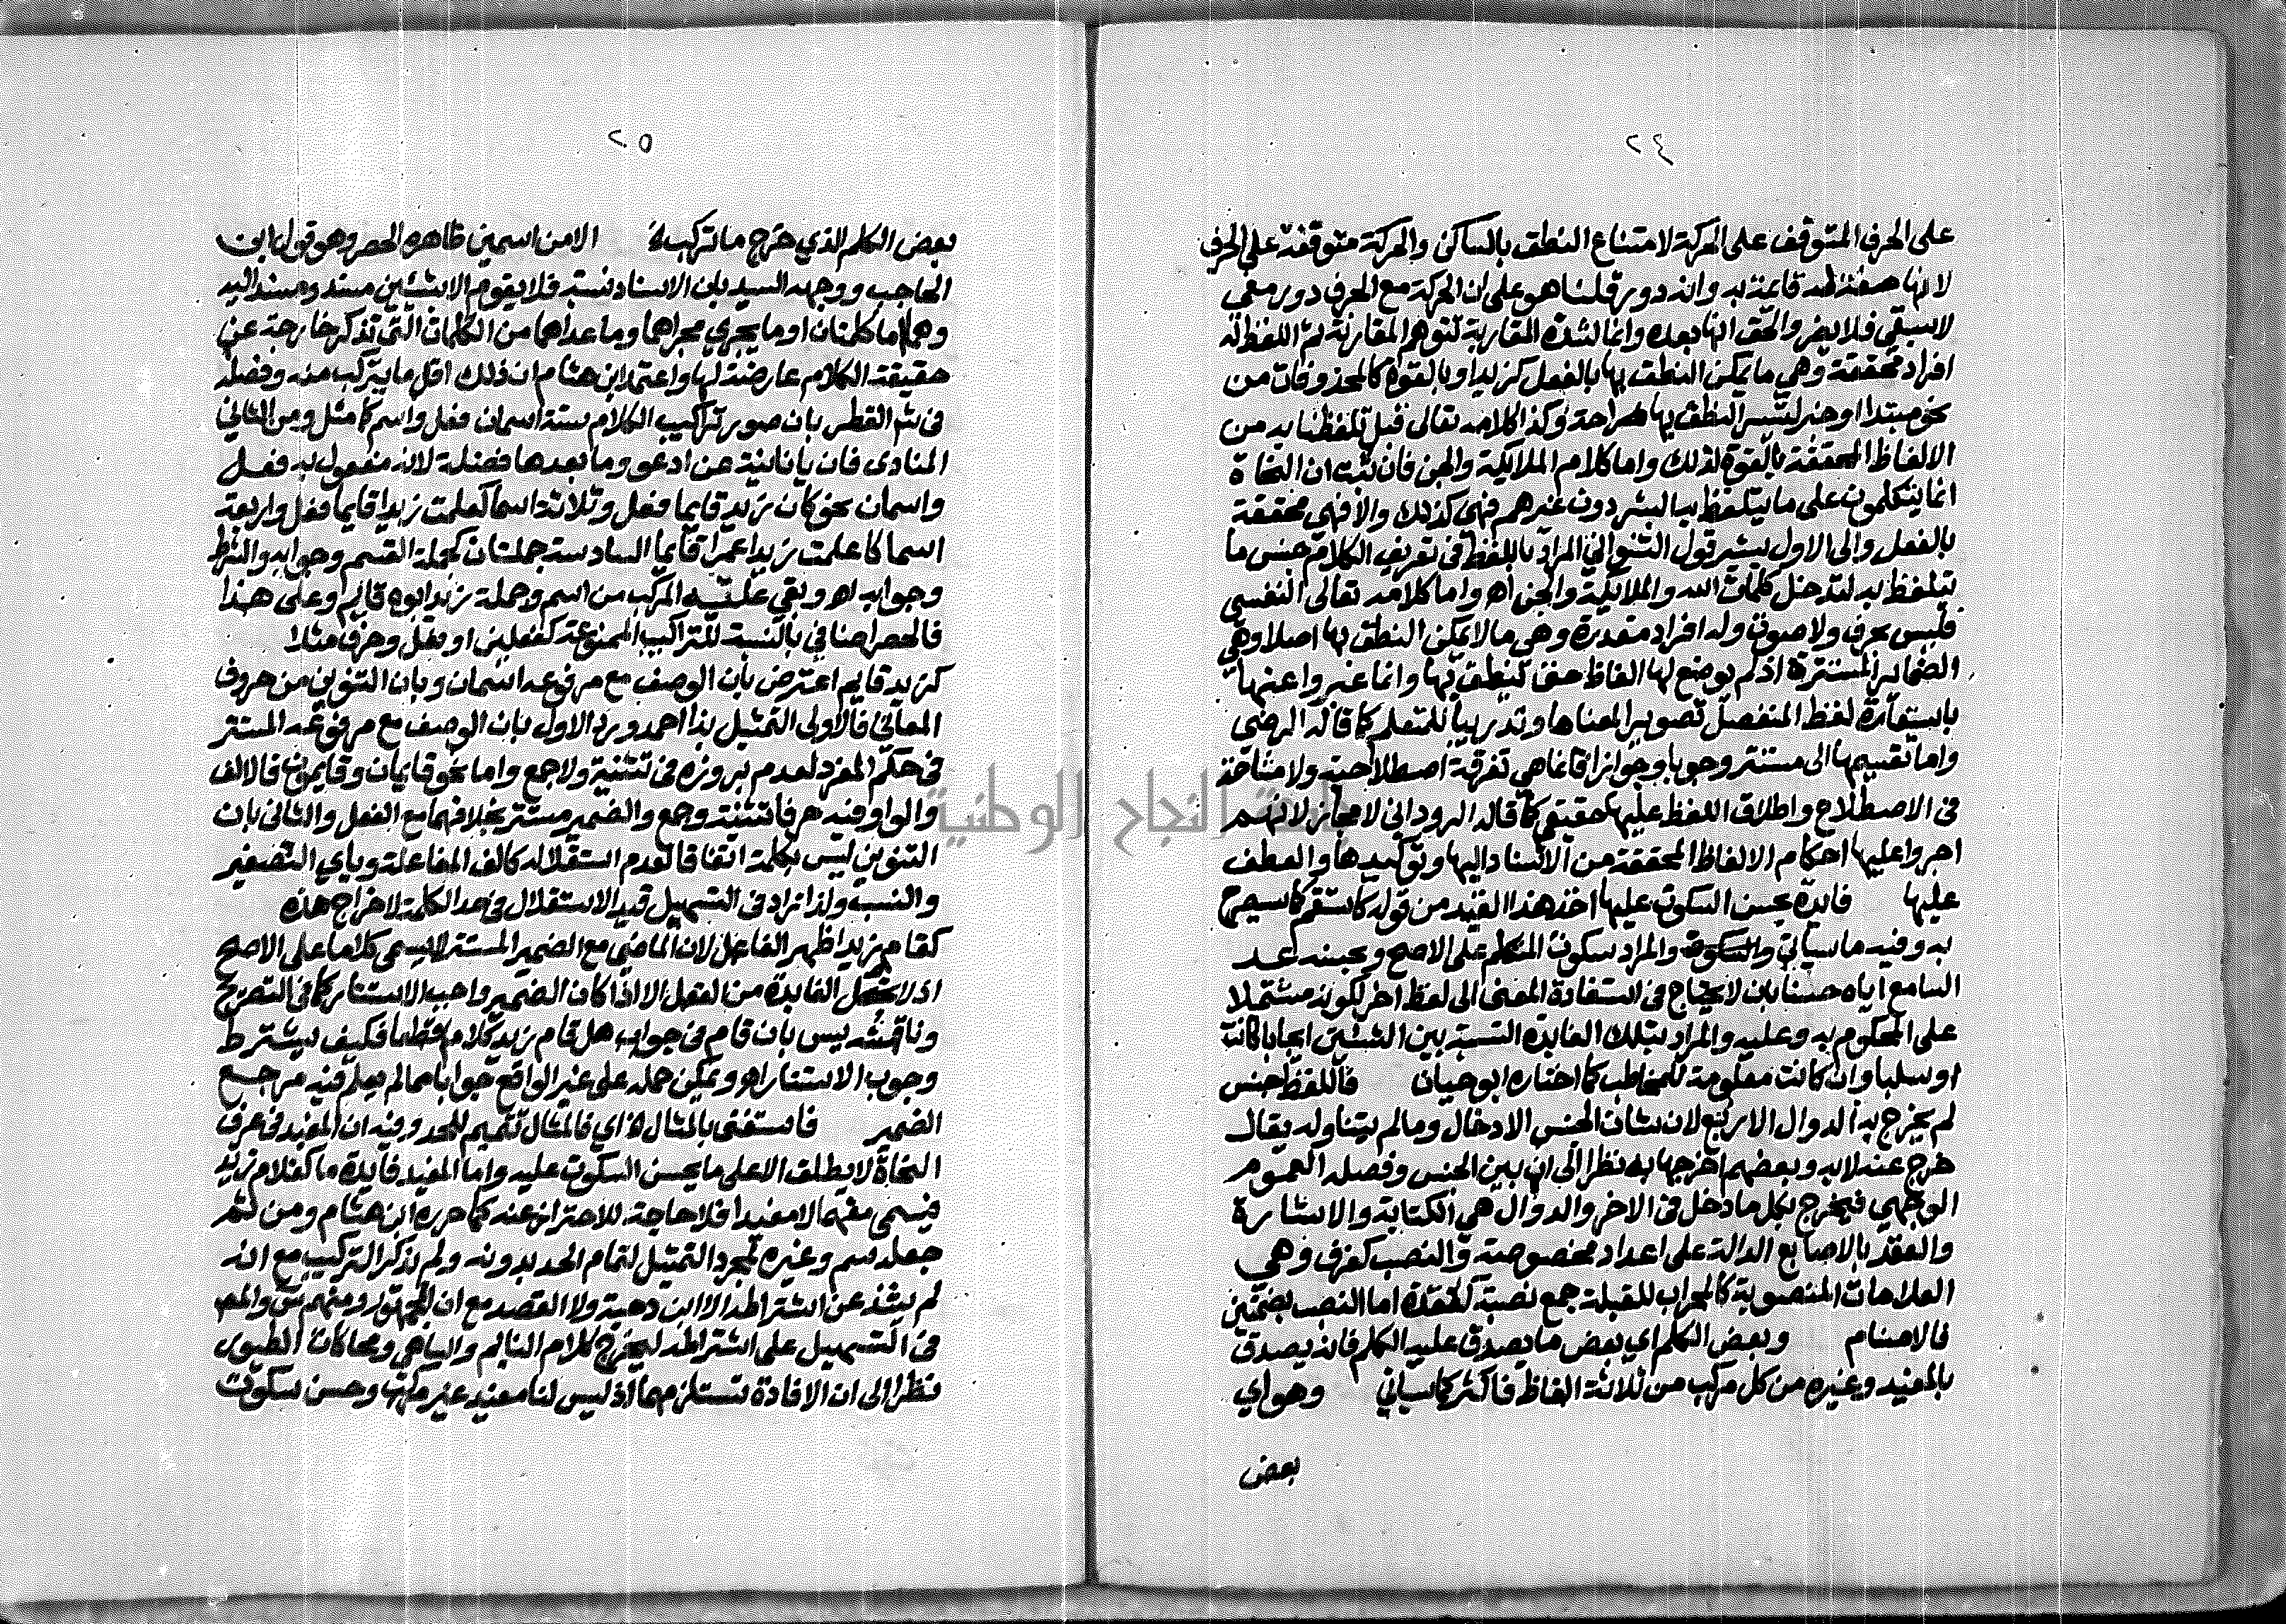 ٢٤
على الحرف المتوقف على الحركة لامتناع النطق بالساكن والحركة متوقفة على الحرف
لانها صفة له قائمة به وانه دور قلنا هو على ان الحركة مع الحرف دور معي
لا سبقي فلا يضر والحق انها بعده وانما لشدة المقاربة تتوهم المقارنة ثم اللفظ له
افراد محققة وهي ما يمكن النطق بها بالفعل كزيد او بالقوة كالمحذوفات من
نحو مبتدا او خبر لتيسر النطق بها صراحة وكذا كلامه تعالى قبل تلفظنا به من
الالفاظ المحققة بالقوة لذلك واما كلام الملايكة والجن فان ثبت ان النحاة
انما يتكلمون على ما يتلفظ به البشر دون غيرهم فهي كذلك والا فهي محققة
بالفعل والى الاول يشير قول الشنواني المراد باللفظ في تعريف الكلام جنس ما
يتلفظ به لتدخل كلمات الله والملايكة والجن اه واما كلامه تعالى النفسي
فليس بحرف ولا صوت وله افراد مقدرة وهي ما لا يمكن النطق بها اصلا وهي
الضماير المستترة اذ لم يوضع لها الفاظ حتى ينطق بها وانما عبروا عنها
باستعارة لفظ المنفصل تصويرا لمعناها وتدريبا للمتعلم كما قاله الرضى
واما تقسيمها الى مستتر وجوبا وجوازا فانما هي تفرقة اصطلاحية ولا مشاحة
فى الاصطلاح واطلاق اللفظ عليها حقيقي كما قاله الروداني لا مجاز لانهم
اجروا عليها احكام الالفاظ المحققة من الاسناد اليها وتوكيدها والعطف
عليها فايدة يحسن السكوت عليها اخذ هذا القيد من قوله كاستقم كما سيصرح
به وفيه ما سيأتي والمراد سكوت المتكلم على الاصح وبحسنه عد
السامع اياه حسنا بان لا يحتاج فى استفادة المعنى الى لفظ اخر لكونه مشتملا
على المحكوم به وعليه والمراد بتلك الفايدة النسبة بين الشيئين ايجابا كانت
او سلبا وان كانت معلومة للمخاطب كما اختاره ابو حيان فاللفظ جنس
لم يخرج به الدوال الاربع لان شان الجنس الادخال وما لم يتناوله يقال
خرج عنه لا به وبعضهم اخرجها به نظرا الى ان بين الجنس وفصله العموم
الوجهي فيخرج بكل ما دخل فى الاخر والدوال هي الكتابة والاشارة
والعقد بالاصابع الدالة على اعداد مخصوصة والنصب كغرف وهي
العلامات المنصوبة كالمحراب للقبلة جمع نصبة اما النصب بضمتين
فالاصنام وبعض الكلم اي بعض ما يصدق عليه الكلم فانه يصدق
بالمفيد وغيره من كل مركب من ثلاثة الفاظ فاكثر كما سياتي وهو اي
بعض
٢٥
بعض الكلم الذي خرج ما تركب الا من اسمين ظاهره الحصر وهو قول ابن
الحاجب ووجهه السيد بان الاسناد نسبة فلا يقوم الا بشيئين مسند ومسند اليه
وهما اما كلمتان او ما يجري مجراهما وما عداهما من الكلمات التى تذكر خارجة عن
حقيقة الكلام عارضة لها واعتمد ابن هشام ان ذلك اقل ما يتركب منه وفصله
فى شرح القطر بان صور تركيب الكلام ستة اسمان فعل واسم كما مثل ومن الثاني
المنادى فان يا نايبة عن ادعو وما بعدها فضلة لانه مفعول به فعل
واسمان نحو كان زيد قايما فعل وثلاثة اسما كعلمت زيدا قايما فعل واربعة
اسما كاعلمت زيدا عمرا قايما السادسة جملتان كجملة القسم وجوابه والشرط
وجوابه اه وبقي عليه المركب من اسم وجملة زيد ابوه قايم وعلى هذا
فالحصر اضافي بالنسبة للتراكيب الممنوعة كفعلين او فعل وحرف مثلا
كزيد قايم اعترض بان الوصف مع مرفوعه اسمان وبان التنوين من حروف
المعاني فالاولى التمثيل بذا احمد ورد الاول بان الوصف مع مرفوعه المستتر
فى حكم المفرد لعدم بروزه فى تثنية ولا جمع واما نحو قايمان وقايمون فالالف
والواو فيه حرفا تثنية وجمع والضمير مستتر بخلافهما مع الفعل والثانى بان
التنوين ليس بكلمة اتفاقا لعدم استقلاله كالف المفاعلة وياي التصغير
والنسب ولذا زاد فى التسهيل قيد الاستقلال فى حد الكلمة لاخراج هذه
كقام زيد اظهر الفاعل لان الماضي مع الضمير المستتر لا يسمى كلاما على الاصح
اذ لا تحصل الفايدة من الفعل الا اذا كان الضمير واجب الاستتار كما فى التصريح
وناقشه يس بان قام فى جواب هل قام زيد كلام قطعا فكيف يشترط
وجوب الاستتار اه ويمكن حمله على غير الواقع جوابا مما لم يعلم فيه مرجع
الضمير فاستغنى بالمثال اي فالمثال تتميم للحد وفيه ان المفيد فى عرف
النحاة لا يطلق الا على ما يحسن السكوت عليه واما المفيد فايدة ما كغلام زيد
فيسمى مفهما لا مفيدا فلا حاجة للاحتراز عنه كما حرره ابن هشام ومن ثم
جعله سم وغيره لمجرد التمثيل لتمام الحد بدونه ولم يذكر التركيب مع انه
لم يشذ عن اشتراطه الا ابن دحية ولا القصد مع ان الجمهور ومنهم س والمص
فى التسهيل على اشتراطه ليخرج كلام النايم والساهي ومحاكات الطيور
نظرا الى ان الافادة تستلزمهما اذ ليس لنا مفيد غير مركب وحسن سكوت
جامعة النجاح الوطنية